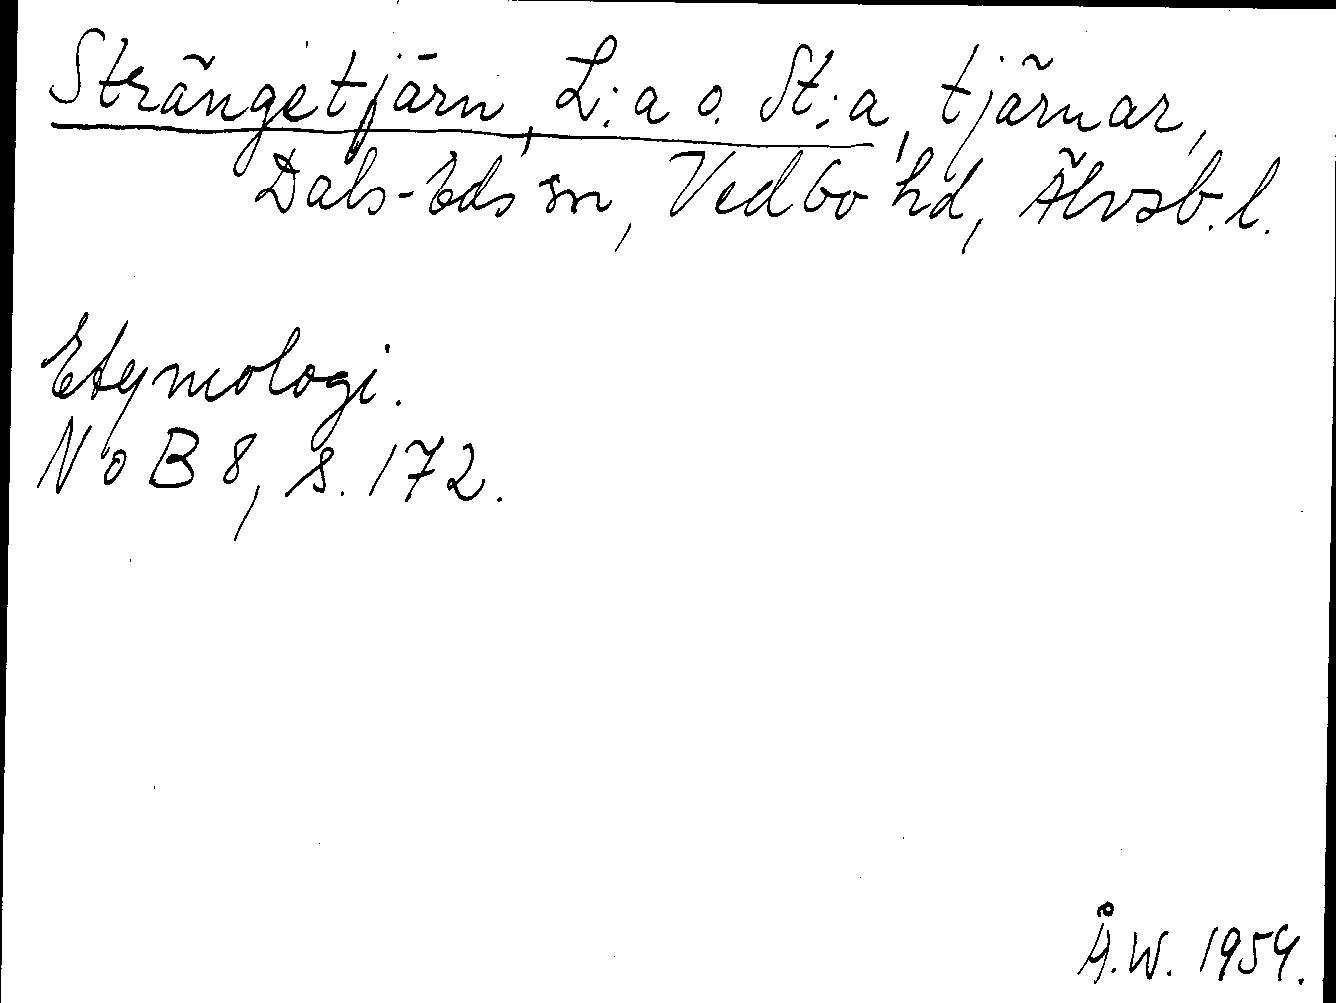 Strängetjärn, L:a o. St:a, tjärnar,
Dals-Eds sn, Vedbo hd, Älvsb. l.
Etymologi.
NoB 8, s. 172.
Å.W. 1954.